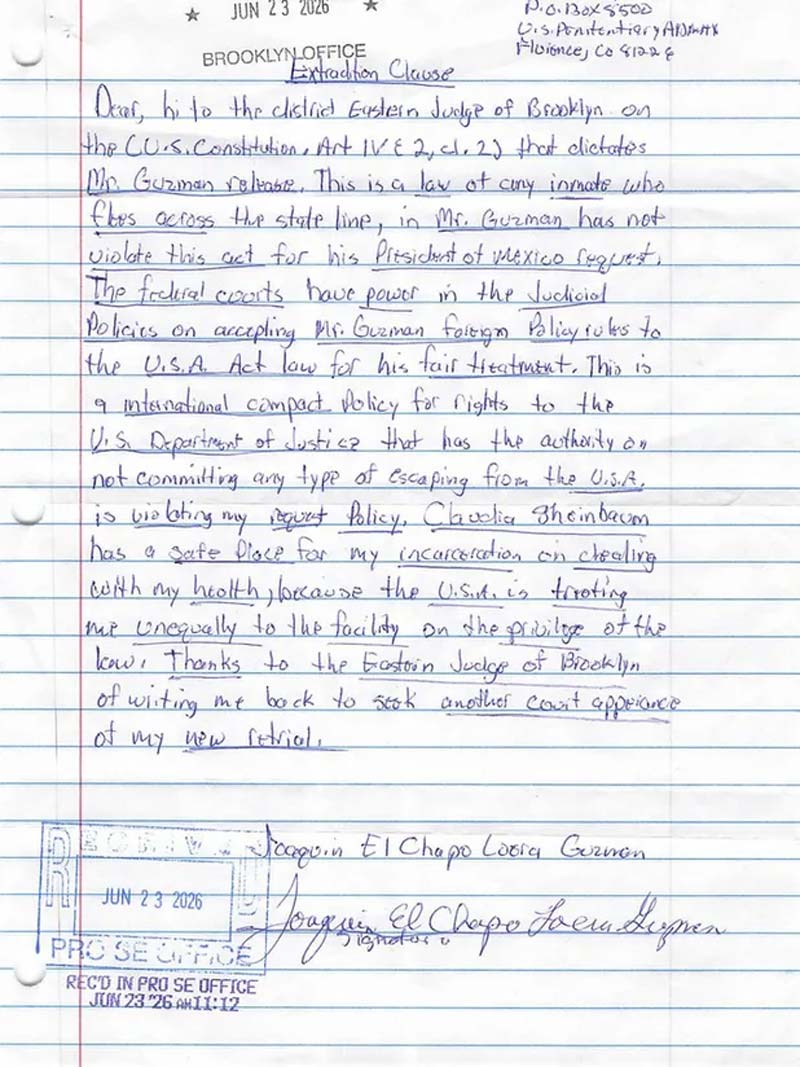 JUN 23 2026
P.O. Box 8500
U.S. Penitentiary Admax
Florence, Co 81226
BROOKLYN OFFICE
Extradition Clause
Dear, hi to the district Eastern Judge of Brooklyn on
the (U.S. Constitution, Art IV § 2, cl. 2) that dictates
Mr. Guzman release. This is a law of any inmate who
flees across the state line, in Mr. Guzman has not
violate this act for his President of Mexico request.
The federal courts have power in the Judicial
Policies on accepting Mr. Guzman foreign Policy rules to
the U.S.A. Act law for his fair treatment. This is
a international compact Policy for rights to the
U.S. Department of Justice that has the authority on
not committing any type of escaping from the U.S.A.
is violating my request Policy. Claudia Sheinbaum
has a safe place for my incarceration on dealing
with my health, because the U.S.A. is treating
me unequally to the facility on the privilge of the
law. Thanks to the Eastern Judge of Brooklyn
of writing me back to seek another court apperance
of my new retrial.
Joaquin El Chapo Loera Guzman
RECEIVED
JUN 23 2026
PRO SE OFFICE
Joaquin El Chapo Loera Guzman
Signature
REC'D IN PRO SE OFFICE
JUN 23 '26 AM 11:12